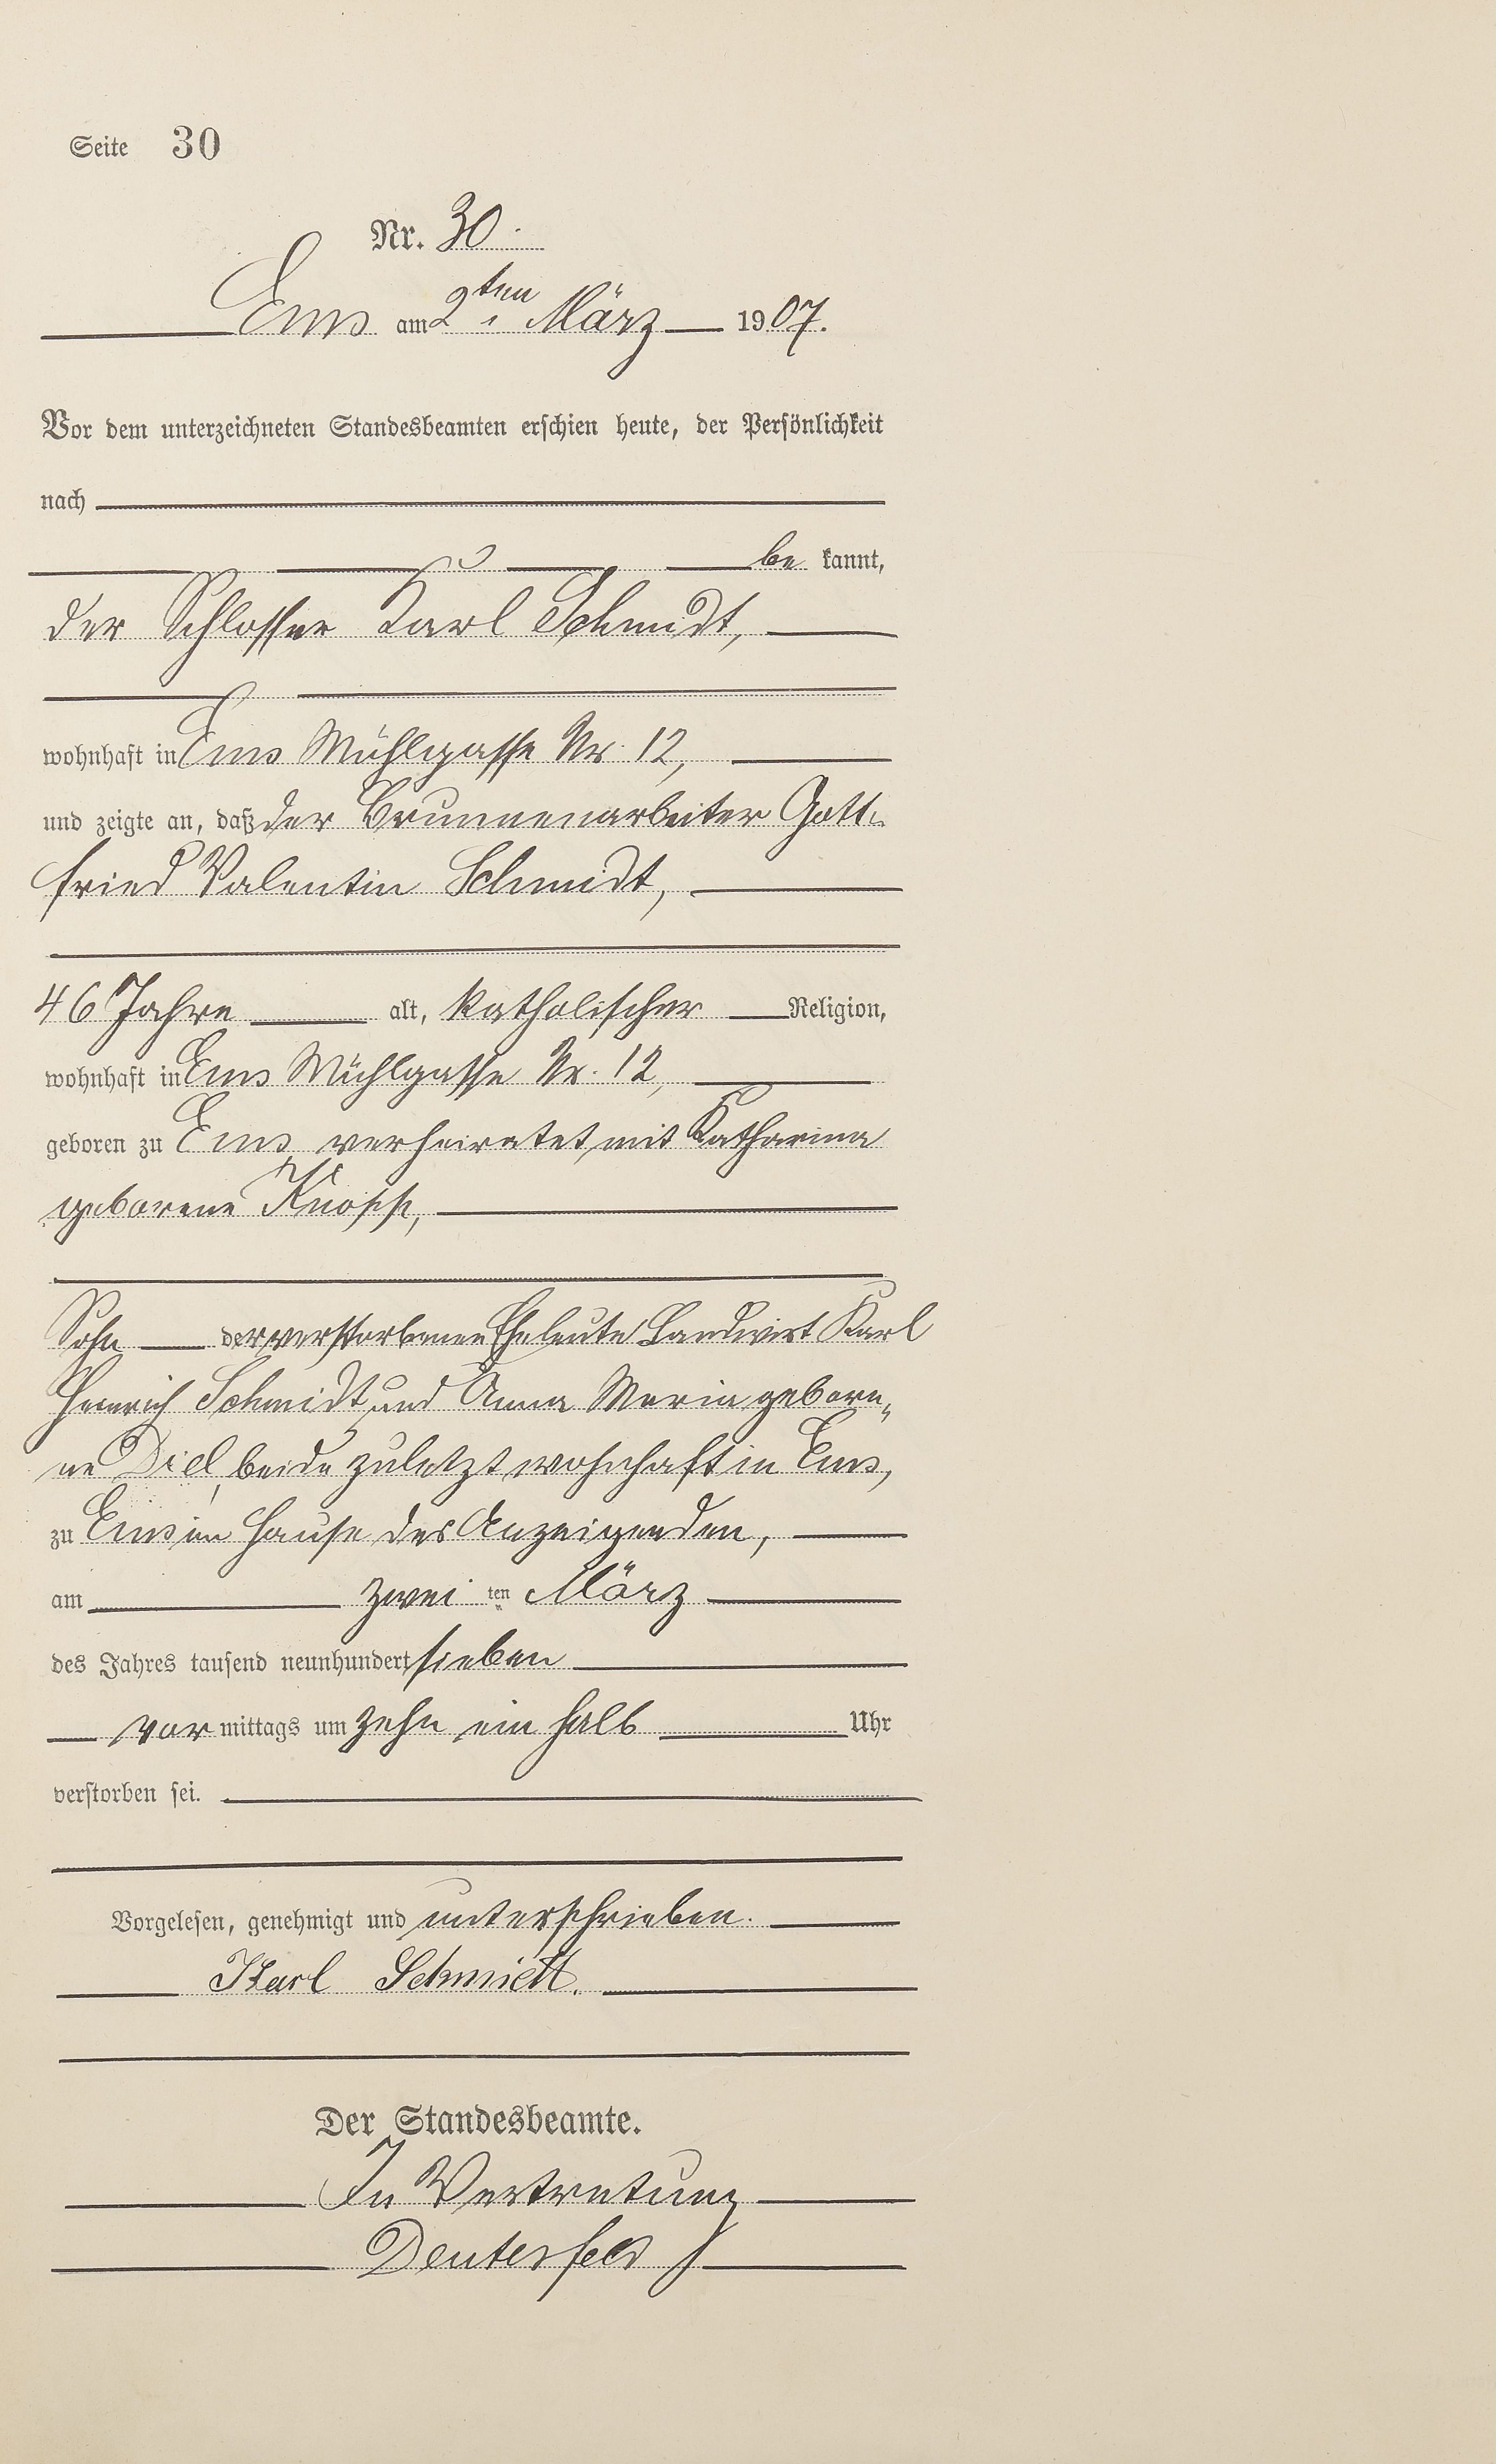 Seite 30
Nr. 30.
Ems am 2ten März 1907.
Vor dem unterzeichneten Standesbeamten erschien heute, der Persönlichkeit
nach
be kannt,
der Schlosser Karl Schmidt,
wohnhaft in Ems Mühlgasse Nr. 12,
und zeigte an, daß der Brunnenarbeiter Gott-
fried Valentin Schmidt,
46 Jahre alt, katholischer Religion,
wohnhaft in Ems Mühlgasse Nr. 12,
geboren zu Ems, verheiratet mit Katharina
geborene Knopp,
Sohn der verstorbenen Eheleute Landwirt Karl
Heinrich Schmidt und Anna Maria gebore„
ne Diel, beide zuletzt wohnhaft in Ems,
zu Ems im Hause des Anzeigenden,
am zwei ten März
des Jahres tausend neunhundert sieben
vor mittags um zehn ein halb Uhr
verstorben sei.
Vorgelesen, genehmigt und unterschrieben.
Karl Schmidt.
Der Standesbeamte.
In Vertretung